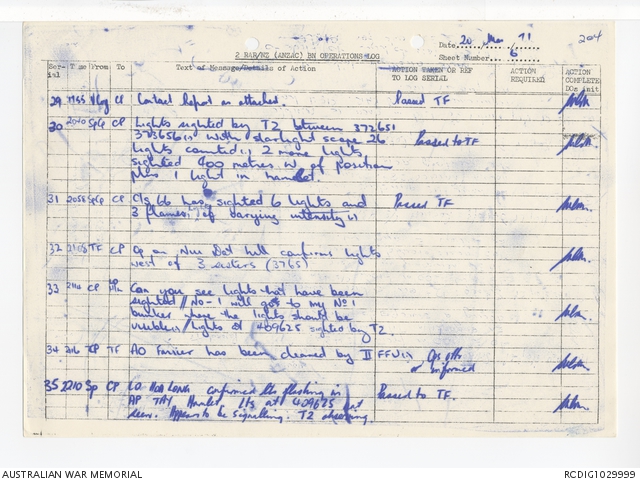 20 Mar 71
204
2 RAR/NZ (ANZAC) BN OPERATIONS LOG
Date
Sheet Number 6
Serial Time From To Text of Message/Details of Action ACTION TAKEN OR REF TO LOG SERIAL ACTION REQUIRED ACTION COMPLETE DOs init
29 1945 CP Contact Report as attached. Passed TF
30 2040 CP Lights sighted by T2 between 372651
373656 with starlight scope 26 Passed to TF
lights counted 2 more lights
sighted 400 metres W of position
plus 1 light in hamlet.
31 2058 CP C/s 66 has sighted 6 lights and Passed TF
3 flames of varying intensity
32 TF CP Op on Nui Dat hill confirms lights
west of 3 (3765)
33 CP Can you see lights that have been
sighted // No - I will go to my No 1
bunker where the lights should be
lights at 409625 sighted by T2.
34 TF AO Farrier has been cleared by II FFV Ops offr
informed
35 2210 CP LO HOA LONG confirmed lts flashing in Passed to TF.
AP TAY Hamlet. Lts at 409625 not
seen. Appears to be signalling. T2 observing
AUSTRALIAN WAR MEMORIAL
RCDIG1029999